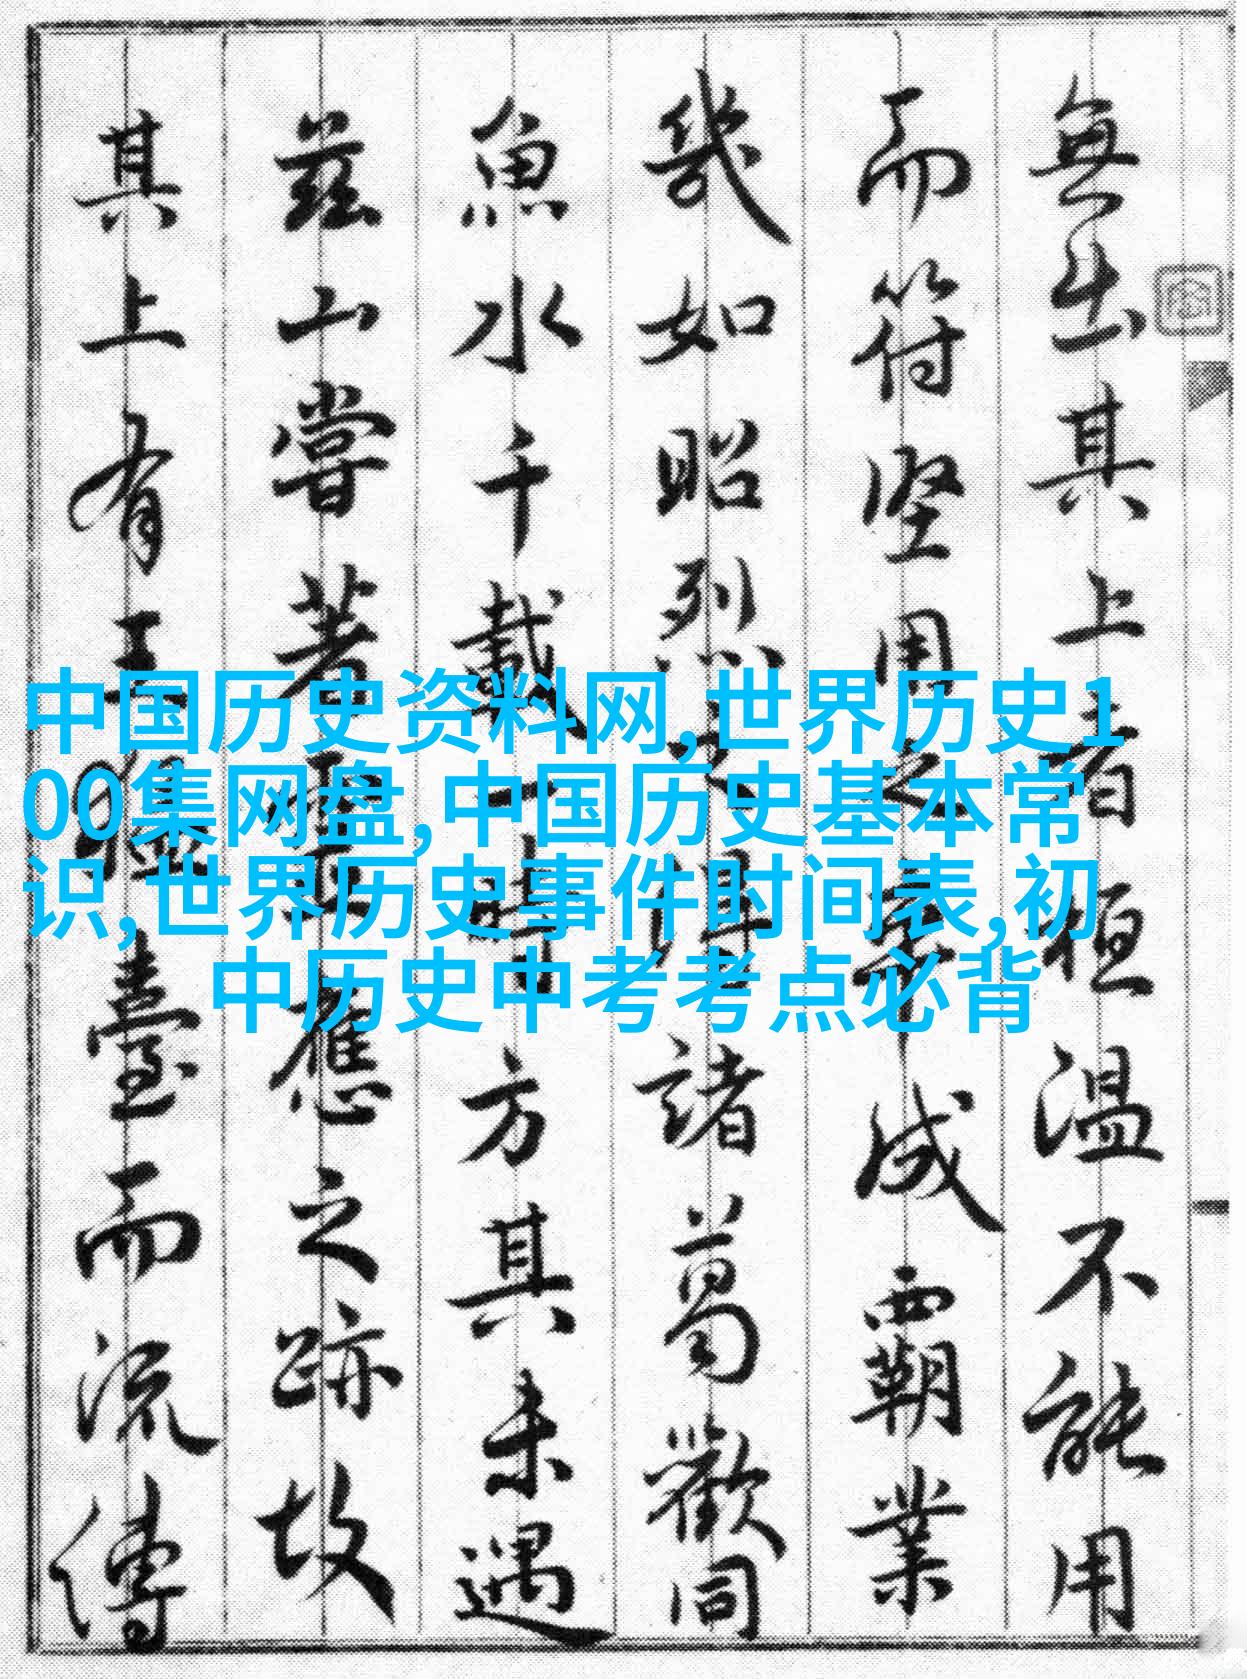 無出其上者桓温不能用
而符堅用之成霸業
幾如昭烈之得諸葛歡同
魚水千載一時方其未遇
茲山嘗著靈應之跡故
其上有王猛臺而流傳
中国历史资料网,世界历史1
00集网盘,中国历史基本常
识,世界历史事件时间表,初
中历史中考考点必背